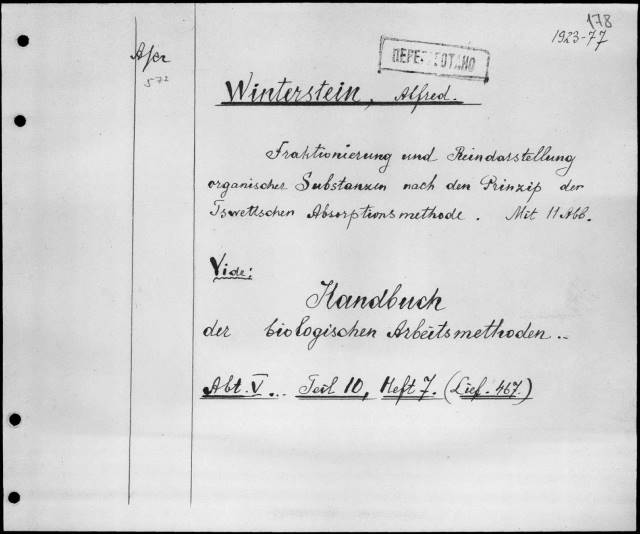 178
1923-77
57²
Winterstein, Alfred.
Fraktionierung und Reindarstellung
organischer Substanzen nach den Prinzip der
Tswettschen Absorptionsmethode. Mit 11 Abb.
Vide:
Handbuch
der biologischen Arbeitsmethoden..
Abt. V... Teil 10, Heft 7. (Lief. 467.)